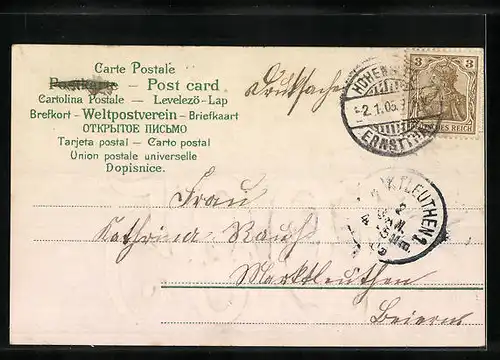 Carte Postale
Postkarte — Post card
Cartolina Postale — Levelező-Lap
Brefkort - Weltpostverein - Briefkaart
ОТКРЫТОЕ ПИСЬМО
Tarjeta postal — Carto postal
Union postale universelle
Dopisnice.
Drucksache
3 3
DEUTSCHES REICH
HOHENS
-2.1.05.
ERNSTTH
KTLEUTHEN 1.
2
JAN.
Frau
Kathrina Rauh
Marktleuthen
Beiern